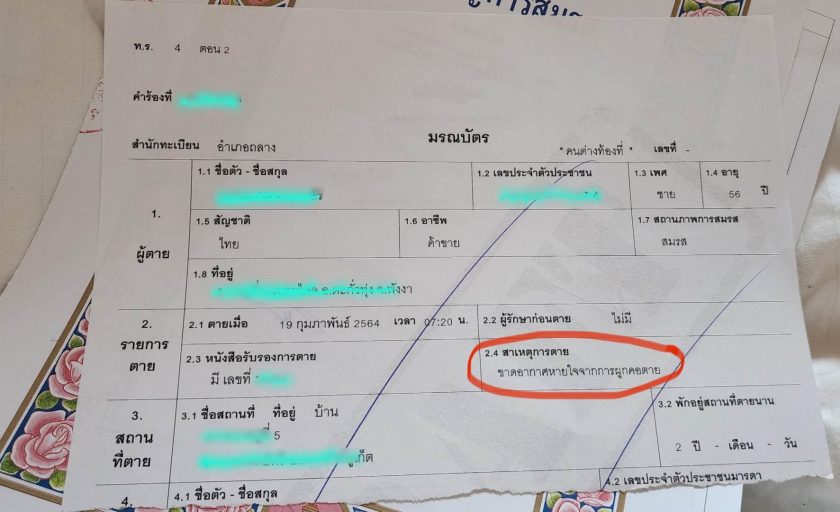 ท.ร. 4 ตอน 2
คำร้องที่
มรณบัตร
สำนักทะเบียน อำเภอถลาง
" คนต่างท้องที่ " เลขที่ -
1. ผู้ตาย
1.1 ชื่อตัว - ชื่อสกุล
1.2 เลขประจำตัวประชาชน
1.3 เพศ
ชาย
1.4 อายุ
56 ปี
1.5 สัญชาติ
ไทย
1.6 อาชีพ
ค้าขาย
1.7 สถานภาพการสมรส
สมรส
1.8 ที่อยู่
อ.ตะกั่วทุ่ง จ.พังงา
2. รายการตาย
2.1 ตายเมื่อ 19 กุมภาพันธ์ 2564 เวลา 07:20 น.
2.2 ผู้รักษาก่อนตาย ไม่มี
2.3 หนังสือรับรองการตาย
มี เลขที่
2.4 สาเหตุการตาย
ขาดอากาศหายใจจากการผูกคอตาย
3. สถานที่ตาย
3.1 ชื่อสถานที่ ที่อยู่ บ้าน
ที่ 5
3.2 พักอยู่สถานที่ตายนาน
2 ปี - เดือน - วัน
4.
4.1 ชื่อตัว - ชื่อสกุล
4.2 เลขประจำตัวประชาชนมารดา